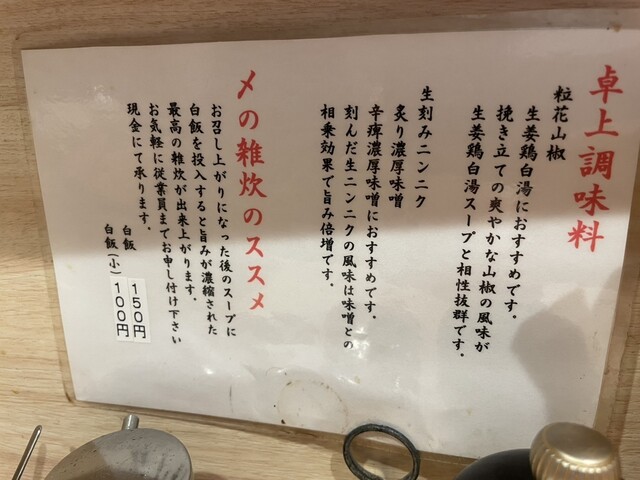 卓上調味料
粒花山椒
生姜鶏白湯におすすめです。
挽き立ての爽やかな山椒の風味が
生姜鶏白湯スープと相性抜群です。
生刻みニンニク
炙り濃厚味噌
辛痺濃厚味噌におすすめです。
刻んだ生ニンニクの風味は味噌との
相乗効果で旨み倍増です。
〆の雑炊のススメ
お召し上がりになった後のスープに
白飯を投入すると旨みが濃縮された
最高の雑炊が出来上がります。
お気軽に従業員までお申し付け下さい
現金にて承ります。
白飯 150円
白飯(小) 100円